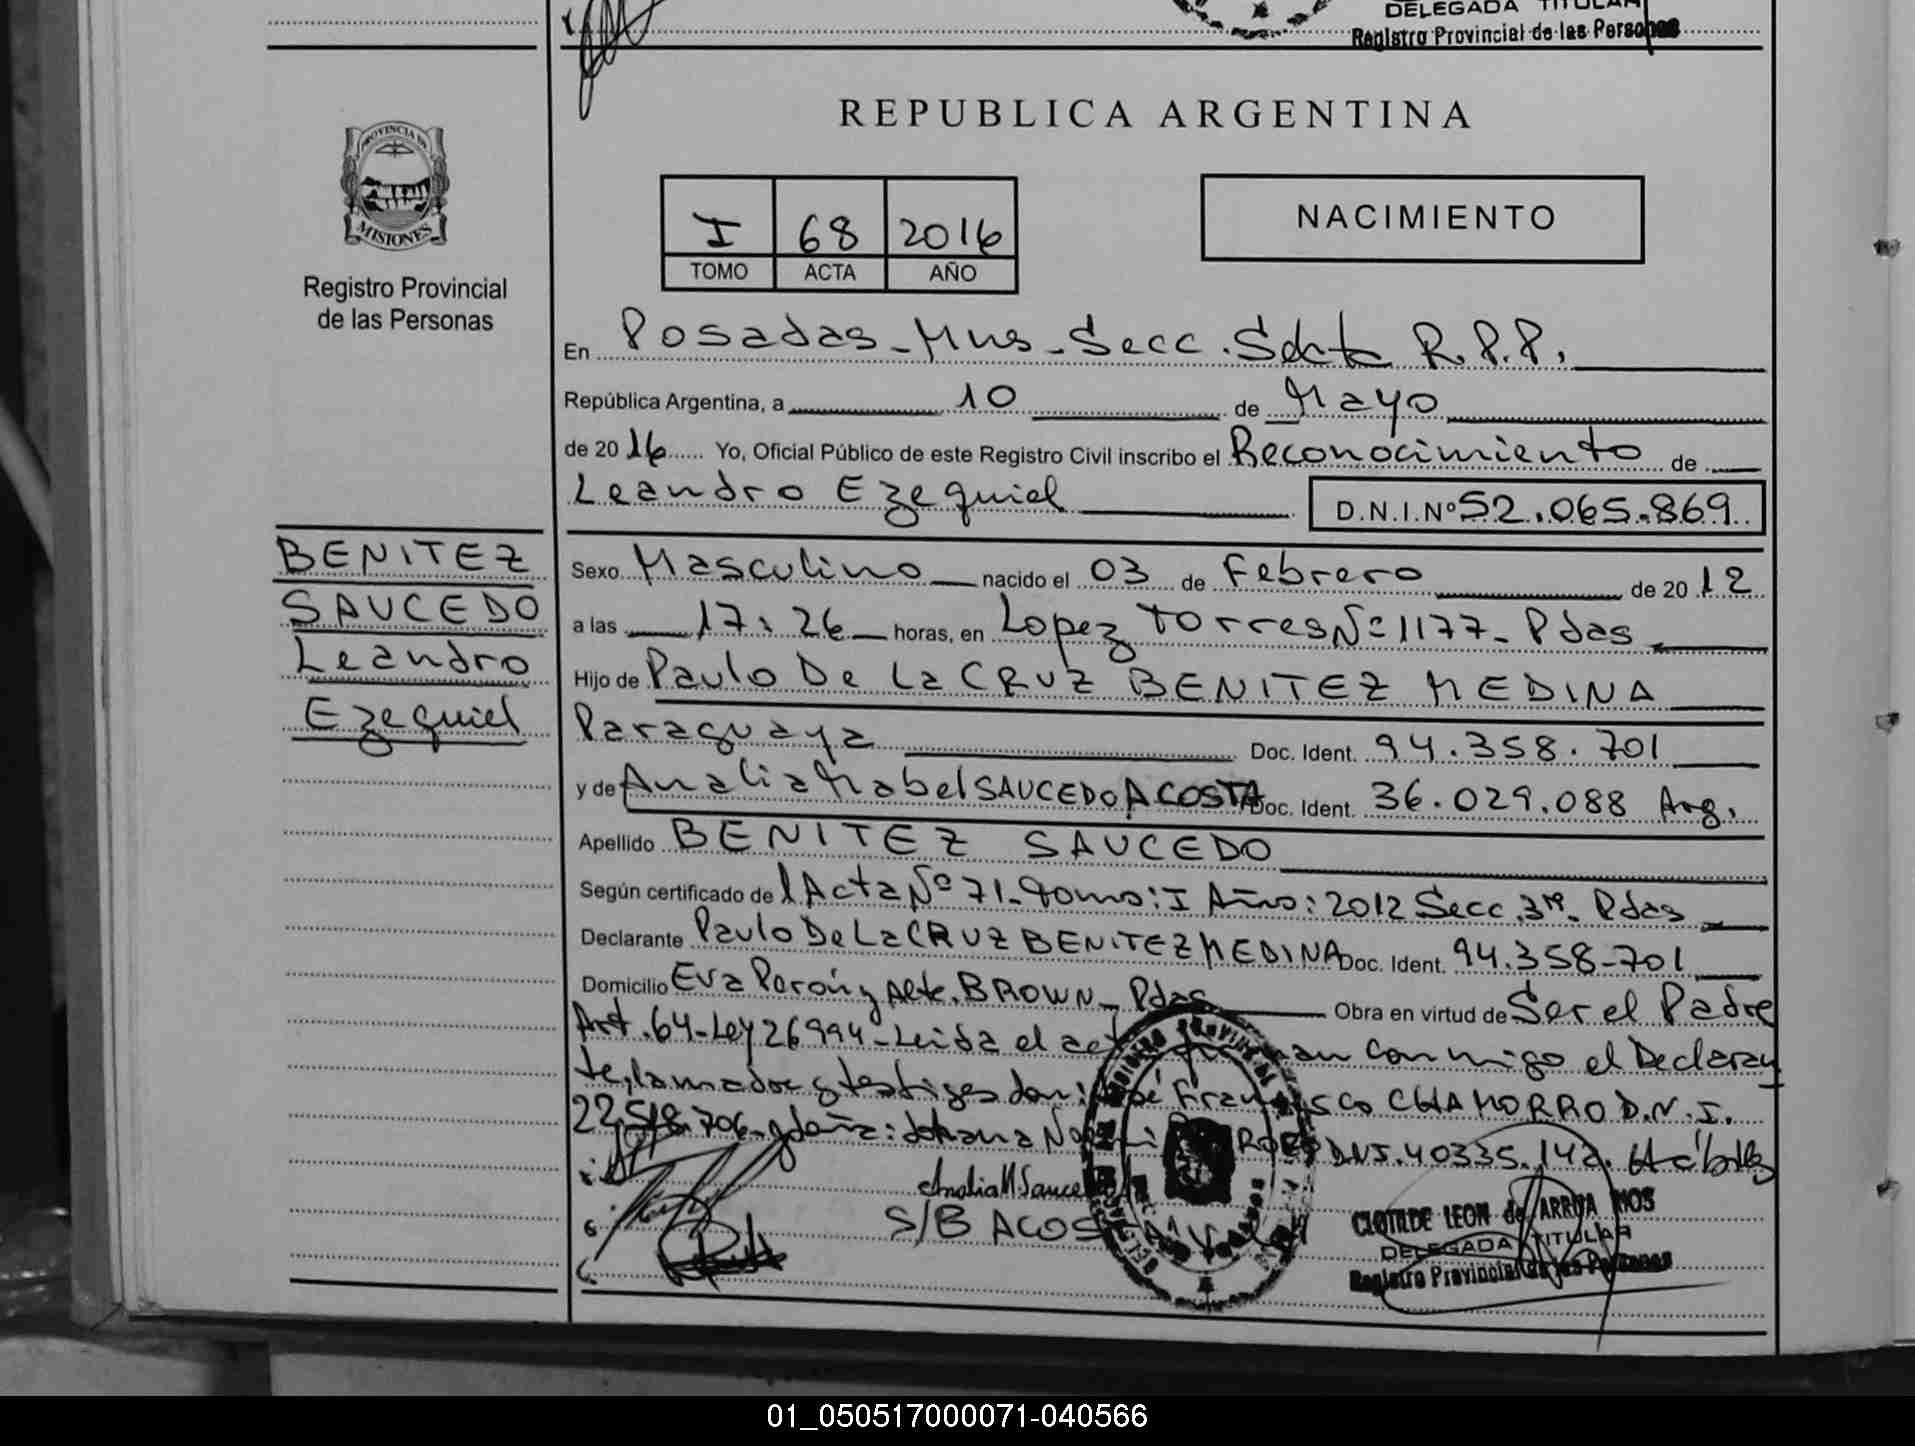 DELEGADA TITULAR
Registro Provincial de las Personas
REPUBLICA ARGENTINA
PROVINCIA DE
MISIONES
Registro Provincial
de las Personas
I 68 2016
TOMO ACTA AÑO
NACIMIENTO
En Posadas - Mnes - Secc. Sexta R.P.P.
República Argentina, a 10 de Mayo
de 2016 Yo, Oficial Público de este Registro Civil inscribo el Reconocimiento de
Leandro Ezequiel D.N.I.Nº 52.065.869
BENITEZ
SAUCEDO
Leandro
Ezequiel
Sexo Masculino nacido el 03 de Febrero de 2012
a las 17:26 horas, en Lopez Torres Nº 1177 - Pdas
Hijo de Paulo De La CRUZ BENITEZ MEDINA
Paraguaya Doc. Ident. 94.358.701
y de Analia Mabel SAUCEDO ACOSTA Doc. Ident. 36.029.088 Arg.
Apellido BENITEZ SAUCEDO
Según certificado del Acta Nº 71 - Tomo: I Año: 2012 Secc. 3ra. Pdas
Declarante Paulo De La CRUZ BENITEZ MEDINA Doc. Ident. 94.358-701
Domicilio Eva Perón y Alte. BROWN - Pdas Obra en virtud de Ser el Padre
Art. 64 - Ley 26994 - Leida el act firman conmigo el Declaran
te, la madre y testigos don: José Francisco CHAMORRO D.N.I.
22.518.706 - y doña: Johana DNI. 40335.142. Hábiles
Analia M Sauce
S/B ACOSTA
CLOTILDE LEON de ARRUA MOS
DELEGADA TITULAR
Registro Provincial de las Personas
01_050517000071-040566